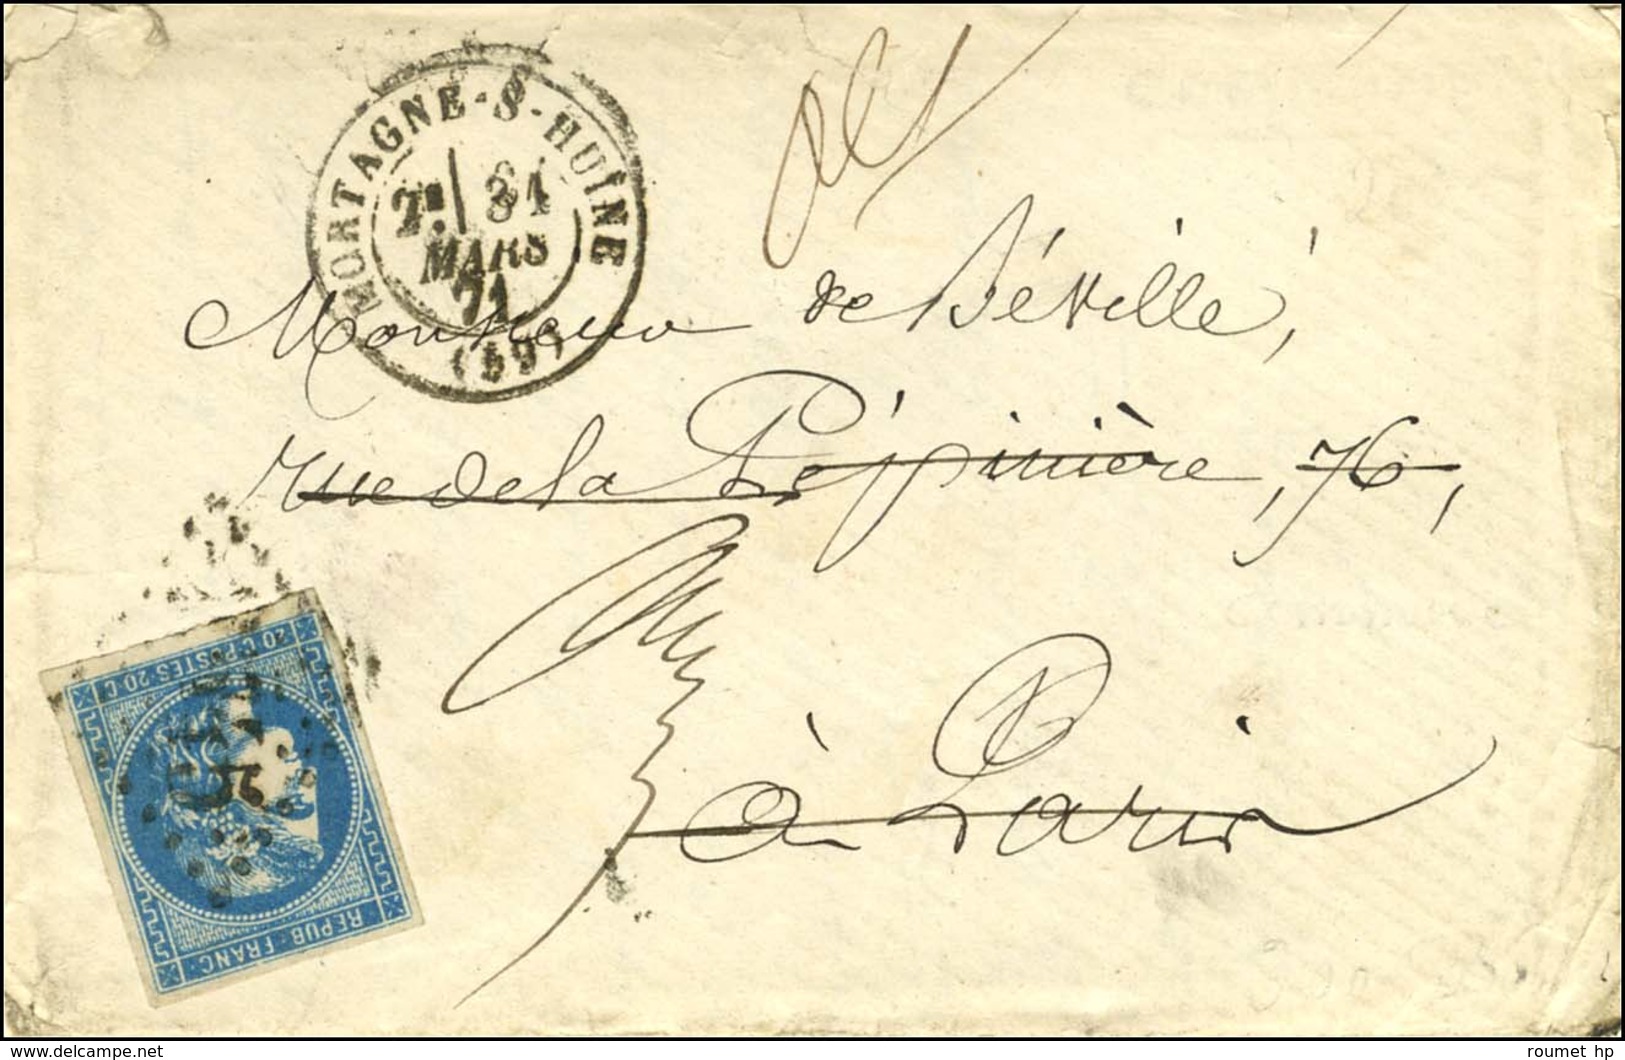 MORTAGNE-S-HUÎNE
2E 31
MARS
71
(59)
Monsieur de Béville,
rue de la Pépinière, 76,
à Paris
20 C POSTES 20 C
REPUB FRANC
www.delcampe.net
roumet hp